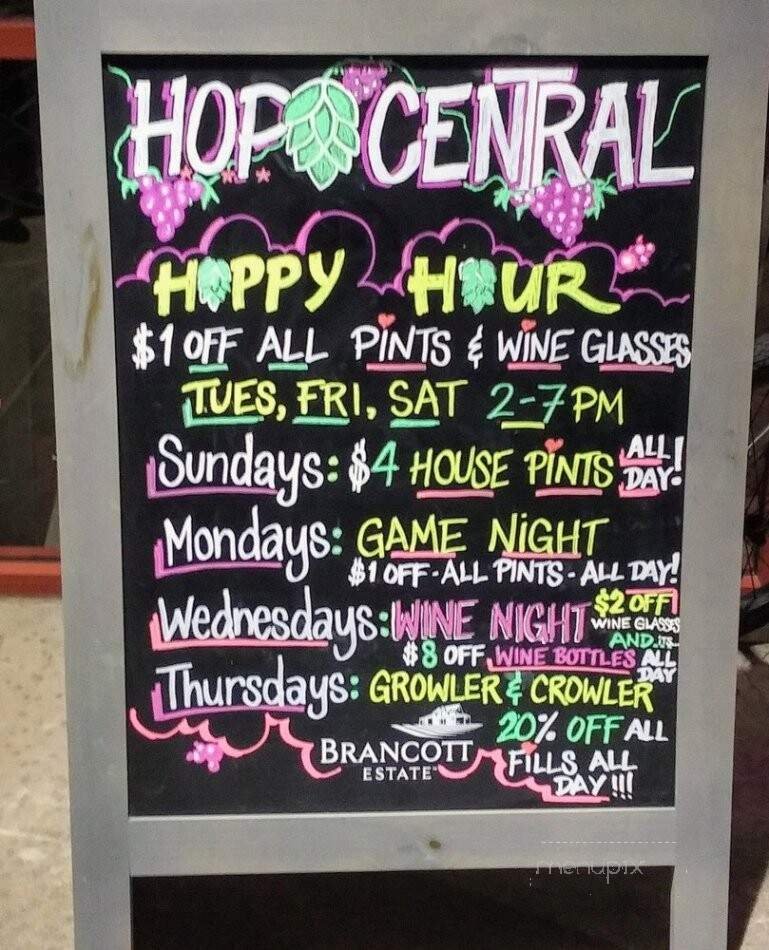 HOP CENTRAL
HOPPY HOUR
$1 OFF ALL PINTS & WINE GLASSES
TUES, FRI, SAT 2-7 PM
Sundays: $4 HOUSE PINTS ALL DAY!
Mondays: GAME NIGHT
$1 OFF - ALL PINTS - ALL DAY!
Wednesdays: WINE NIGHT $2 OFF
WINE GLASSES
AND
$8 OFF WINE BOTTLES ALL DAY
Thursdays: GROWLER & CROWLER
20% OFF ALL
FILLS ALL
DAY!!!
BRANCOTT
ESTATE
menupix